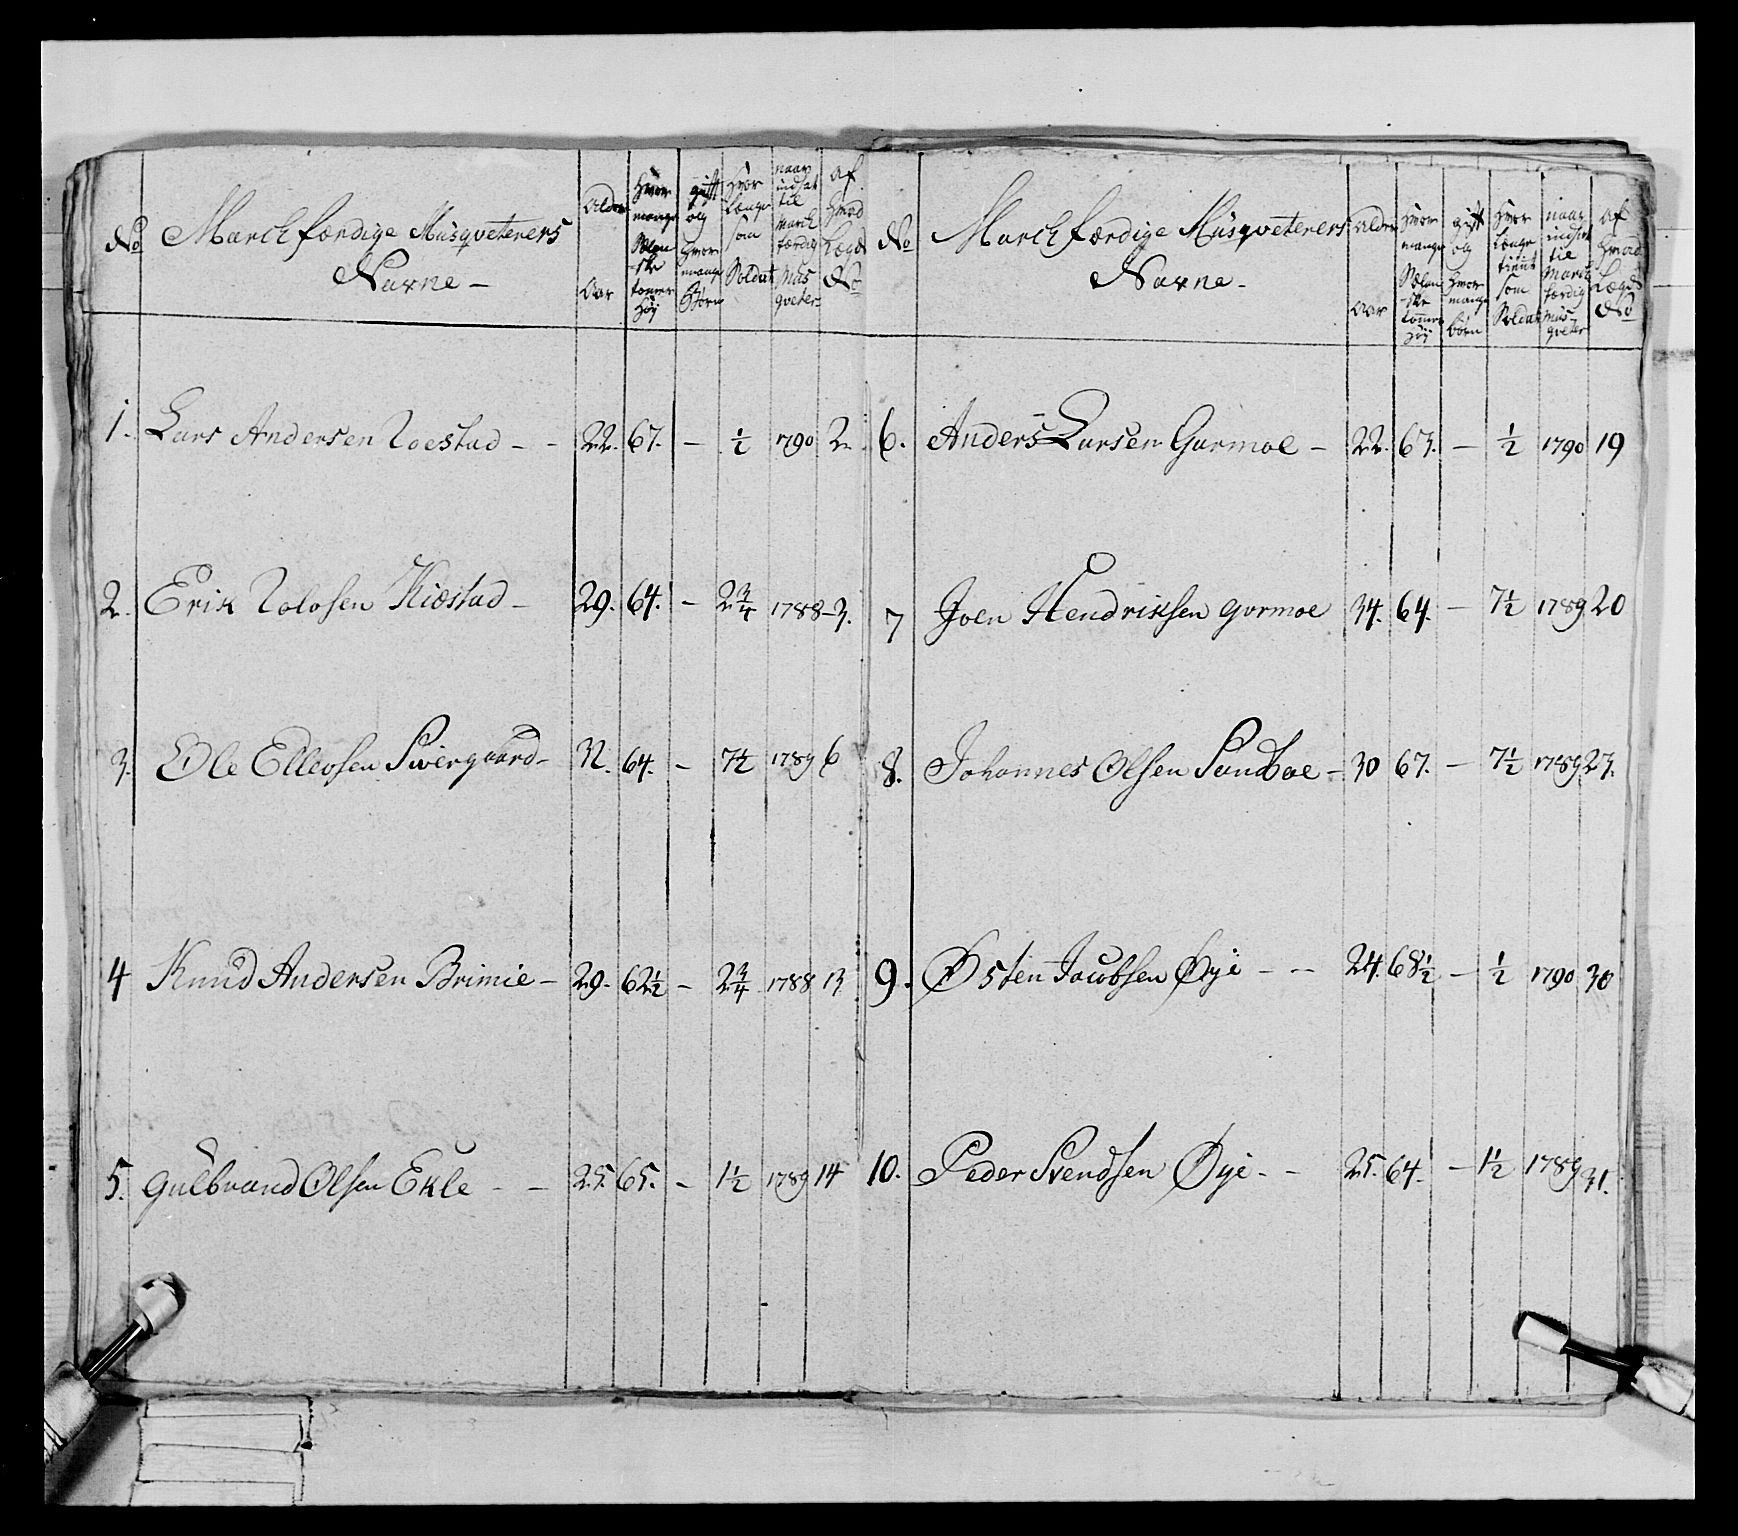 No
March færdige Musqveterers
Navne -
Alder
Aar
Hvor
mange
Sælan
ske
tomer
høy
gift
og
hvor
mange
Børn
Hvor
længe
som
Soldat
naar
indsat
til
March
færdig
Mus
qveter
af
hvad
Lægd
No
1. Lars Andersen Loestad - - 22. 67. - ½ 1790 2.
2. Erik Kiæstad - 29. 64. - 2¾ 1788 - 3.
3. Ole Ellevsen 32. 64. - 7½ 1789 6
4 Knud Andersen Brimie - 29. 62½ - 2¾ 1788 13
5. Gulbrand Olsen Ekle - - 25. 65. - 1½ 1789 14
No
March færdige Musqveterers
Navne -
Alder
Aar
Hvor
mange
Sælan
ske
tomer
høy
gift
og
hvor
mange
børn
Hvor
længe
tient
som
Soldat
naar
indsat
til
March
færdig
Mus
qveter
af
hvad
Lægd
No
6. Anders Larsen Garmoe - 22. 63. - ½ 1790 19
7 Joen Hendriksen garmoe 34. 64. - 7½ 1789 20
8. Johannes Olsen Sandboe - 30 67. - 7½ 1789 23.
9. Østen Jacobsen Øye - - 24. 68½ - ½ 1790 30
10. Peder Svendsen Øye - - 25. 64. - 1½ 1789 31.